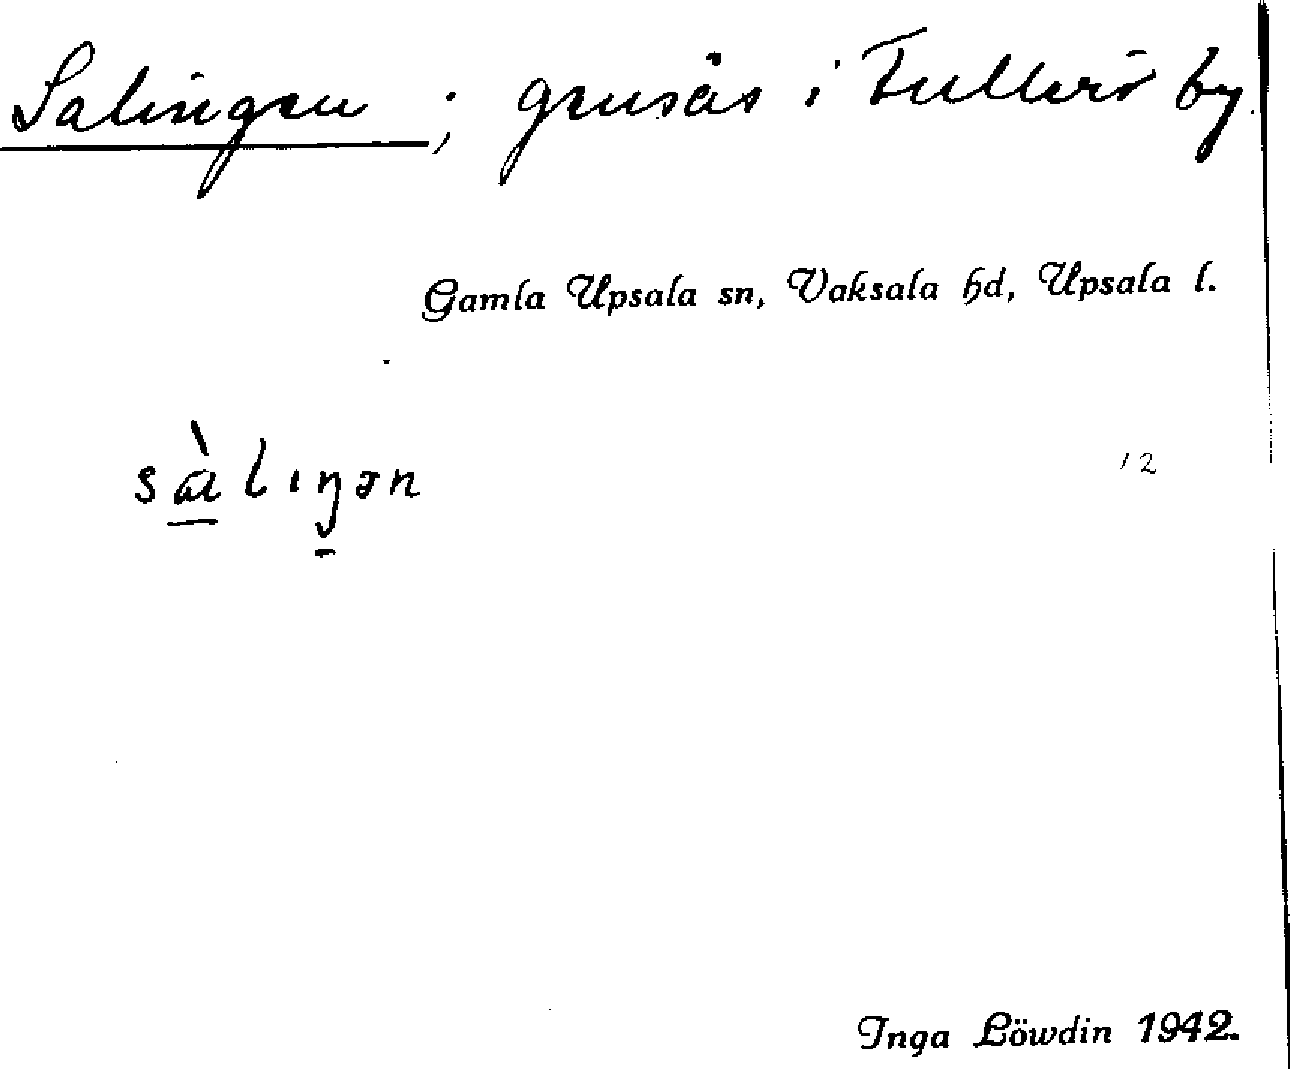 Salingen ; grusås i Fullerö by.
Gamla Upsala sn, Vaksala hd, Upsala l.
sàlıŋən
12
Inga Löwdin 1942.